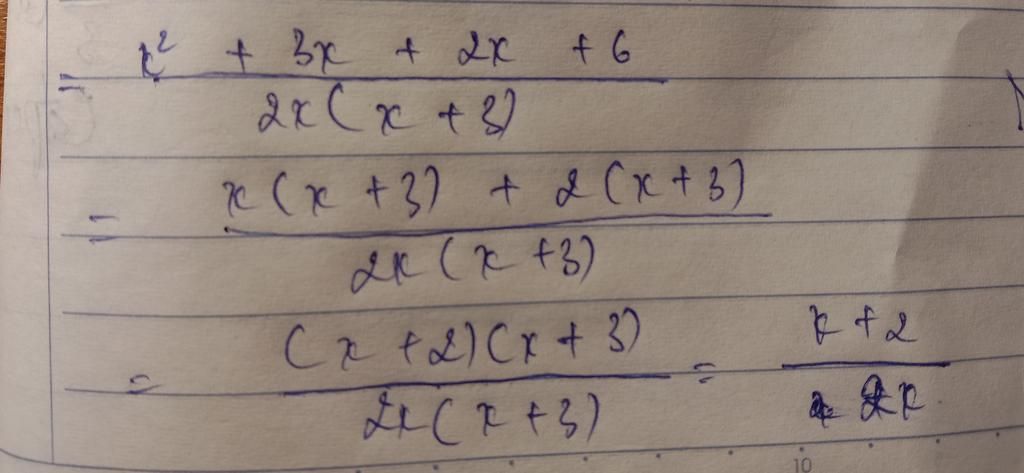 = x² + 3x + 2x + 6
2x(x + 3)
= x(x + 3) + 2(x + 3)
2x(x + 3)
= (x + 2)(x + 3) = x + 2
2x(x + 3) 2x
10